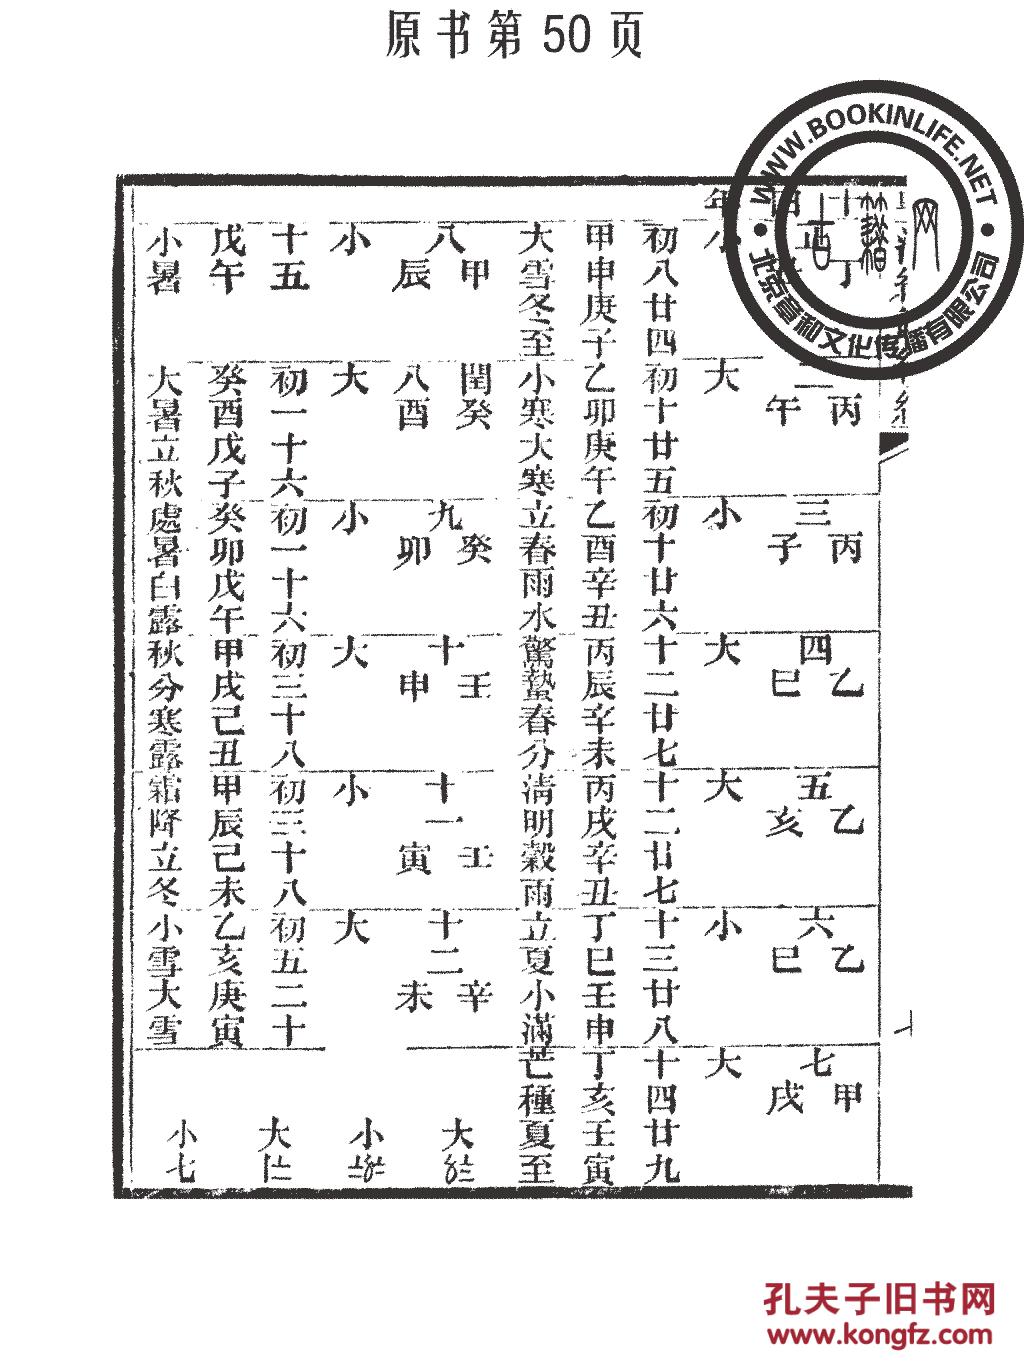 原书第 50 页
WWW.BOOKINLIFE.NET
北京章和文化传播有限公司
年
丙午 二
丙子 三
乙巳 四
乙亥 五
乙巳 六
甲戌 七
大
小
大
大
小
大
初八廿四初十廿五初十廿六十二廿七十二廿七十三廿八十四廿九
甲申庚子乙卯庚午乙酉辛丑丙辰辛未丙戌辛丑丁巳壬申丁亥壬寅
大雪冬至小寒大寒立春雨水驚蟄春分清明穀雨立夏小滿芒種夏至
八 甲辰
閏八 癸酉
九 癸卯
十 壬申
十一 壬寅
十二 辛未
小
大
小
大
小
大
十五初一十六初一十六初三十八初三十八初五二十
戊午癸酉戊子癸卯戊午甲戌己丑甲辰己未乙亥庚寅
小暑大暑立秋處暑白露秋分寒露霜降立冬小雪大雪
大
小
大
小七
孔夫子旧书网
www.kongfz.com